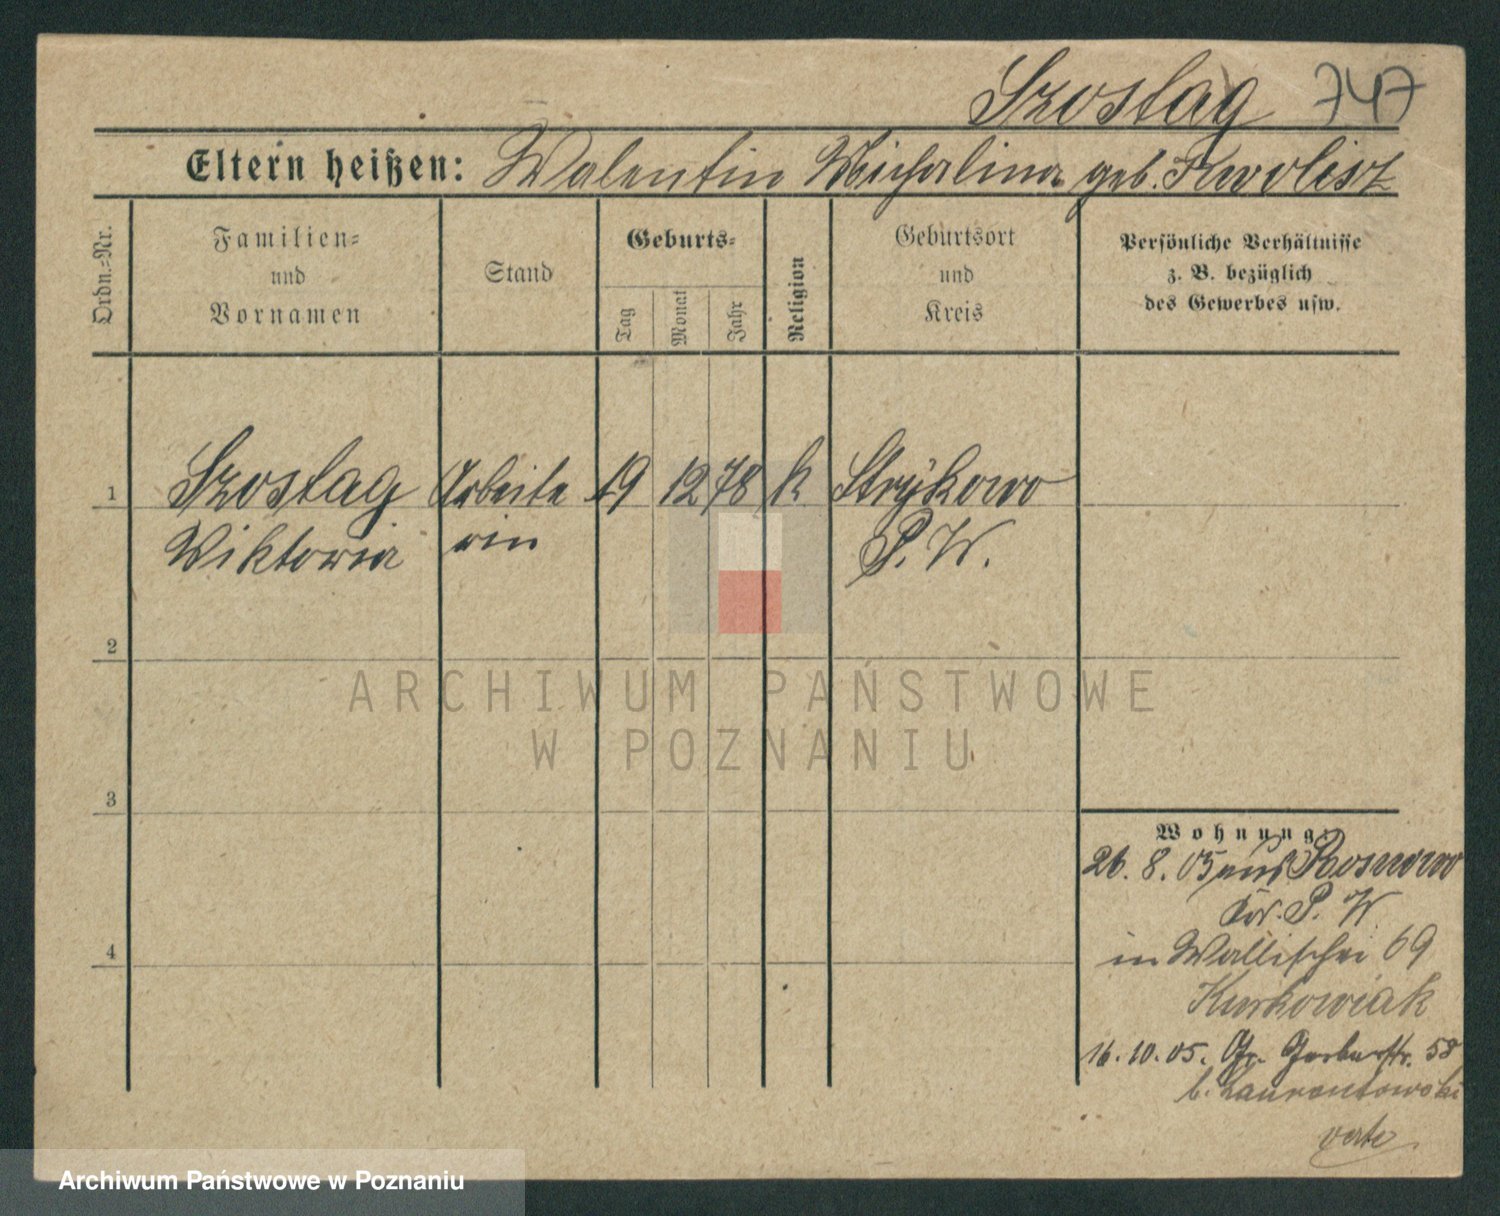 Szostag 747
Eltern heißen: Walentin Michalina geb. Kwolisz
Ordn.-Nr.
Familien-
und
Vornamen
Stand
Geburts-
Tag
Monat
Jahr
Religion
Geburtsort
und
Kreis
Persönliche Verhältnisse
z. B. bezüglich
des Gewerbes usw.
1 Szostag Arbeite 19 12 78 k Strykowo
Wiktoria rin P. W.
2
3
4
ARCHIWUM PAŃSTWOWE
W POZNANIU
Wohnung:
26. 8. 05 aus Rosnowo
Kr. P. W
in Wallischei 69
Kurkowiak
16. 10. 05. Gr. Gerberstr. 58
b. Laurentowski
verte
Archiwum Państwowe w Poznaniu